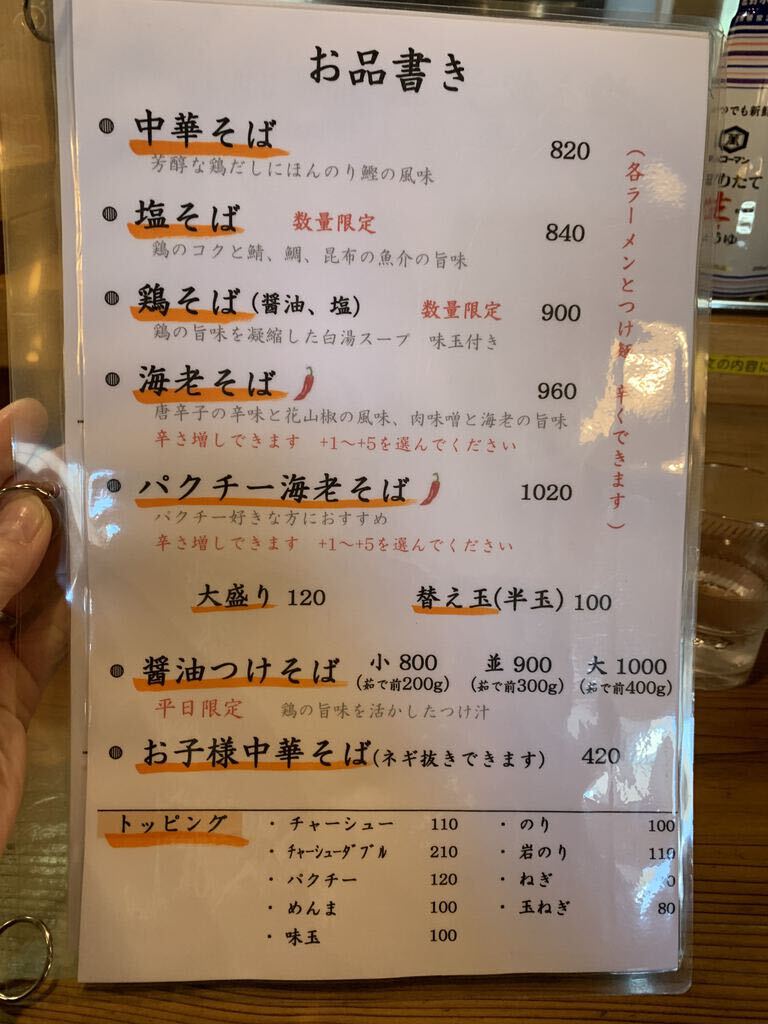 お品書き
中華そば 820
芳醇な鶏だしにほんのり鰹の風味
塩そば 数量限定 840
鶏のコクと鯖、鯛、昆布の魚介の旨味
鶏そば (醤油、塩) 数量限定 900
鶏の旨味を凝縮した白湯スープ 味玉付き
海老そば 960
唐辛子の辛味と花山椒の風味、肉味噌と海老の旨味
辛さ増しできます +1〜+5を選んでください
パクチー海老そば 1020
パクチー好きな方におすすめ
辛さ増しできます +1〜+5を選んでください
(各ラーメンとつけ麺 辛くできます)
大盛り 120 替え玉(半玉) 100
醤油つけそば 小 800 並 900 大 1000
(茹で前200g) (茹で前300g) (茹で前400g)
平日限定 鶏の旨味を活かしたつけ汁
お子様中華そば(ネギ抜きできます) 420
トッピング
・ チャーシュー 110
・ ﾁｬｰｼｭｰﾀﾞﾌﾞﾙ 210
・ パクチー 120
・ めんま 100
・ 味玉 100
・ のり 100
・ 岩のり 110
・ ねぎ
・ 玉ねぎ 80
つでも新鮮
コーマン
りたて
生
うゆ
文の内容に